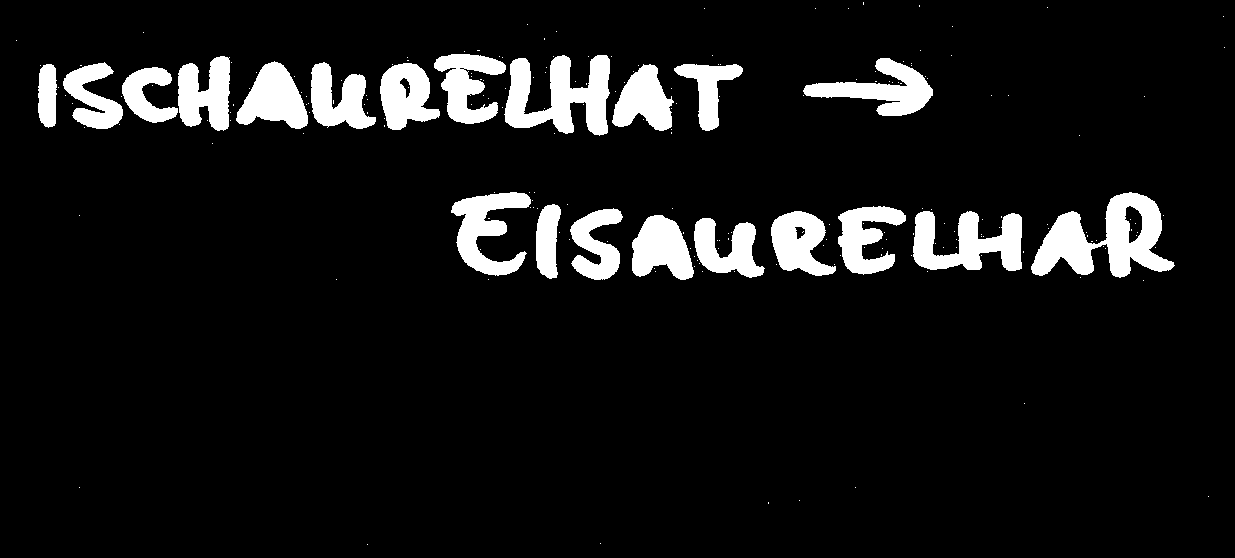 ISCHAURELHAT →
EISAURELHAR